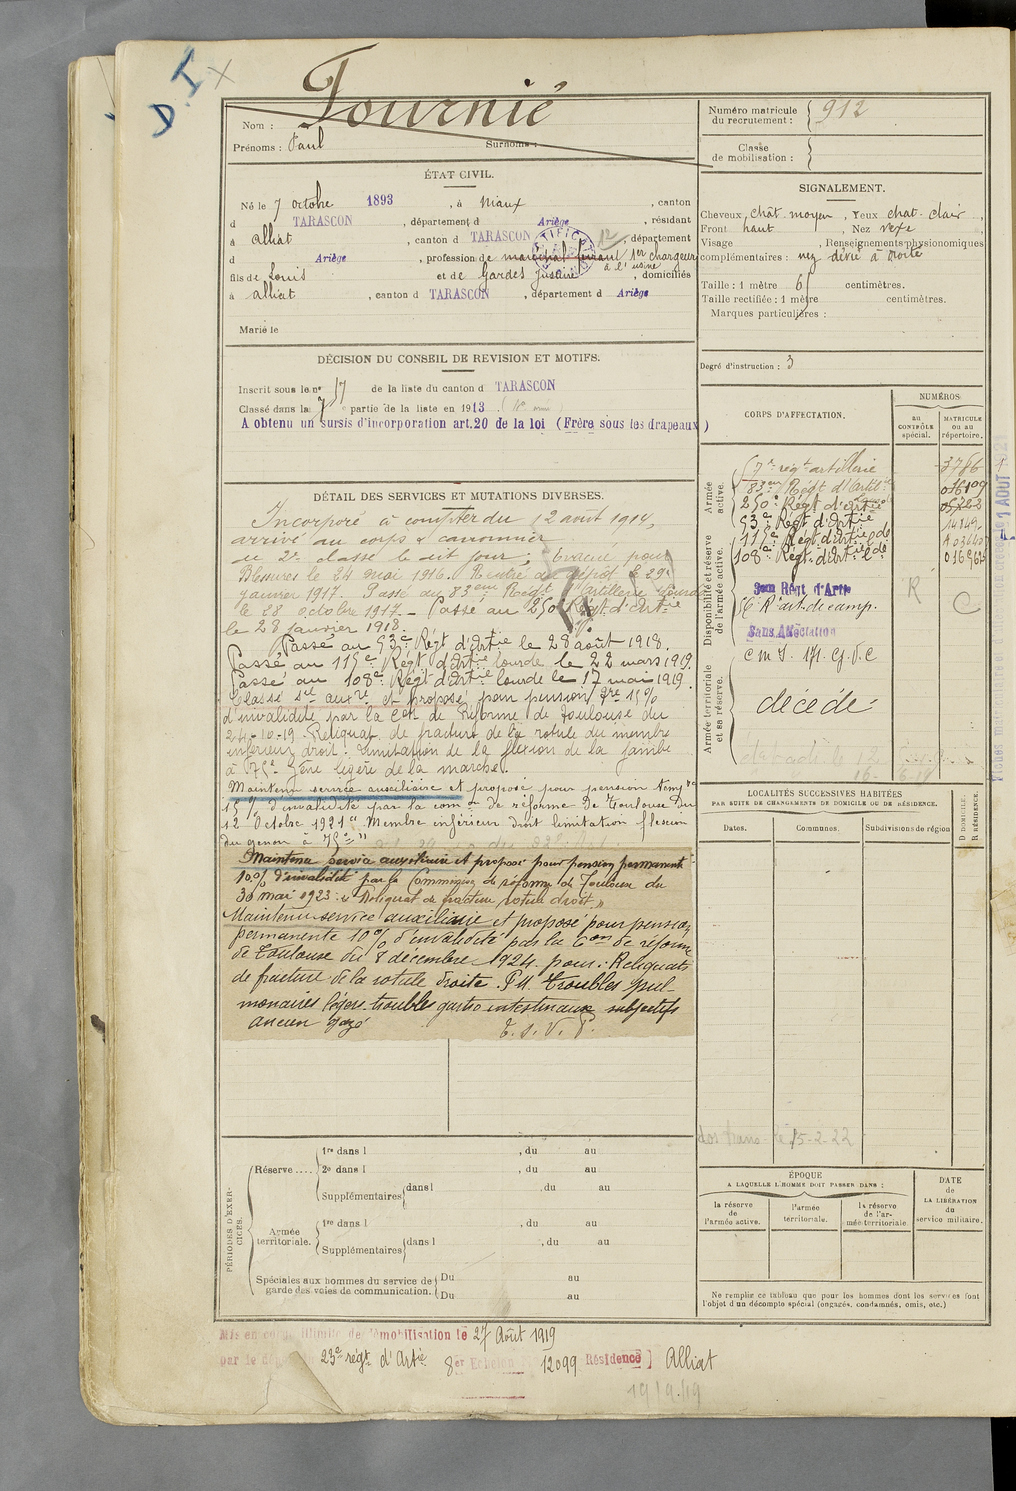 D.I
Fournié
Nom :
Prénoms : Paul Surnoms :
Numéro matricule du recrutement : 912
Classe de mobilisation :
ÉTAT CIVIL.
Né le 7 octobre 1893, à Niaux, canton
d TARASCON, département d Ariège, résidant
à alliat, canton d TARASCON 12, département
d Ariège, profession de maréchal ferrant 1er chargeur à l'usine
fils de Louis et de Gardes Justine, domiciliés
à alliat, canton d TARASCON, département d Ariège
Marié le
SIGNALEMENT.
Cheveux chât. moyen, Yeux chat. clair,
Front haut, Nez vexe
Visage , Renseignements physionomiques
complémentaires : nez dévié à droite
Taille : 1 mètre 61 centimètres.
Taille rectifiée : 1 mètre centimètres.
Marques particulières :
Degré d'instruction : 3
DÉCISION DU CONSEIL DE REVISION ET MOTIFS.
Inscrit sous le n° 57 de la liste du canton d TARASCON
Classé dans la partie de la liste en 1913
A obtenu un sursis d'incorporation art.20 de la loi (Frère sous les drapeaux)
DÉTAIL DES SERVICES ET MUTATIONS DIVERSES.
Incorporé à compter du 12 août 1914,
arrivé au corps & canonnier
de 2e classe le dit jour ; Evacué pour
Blessures le 24 mai 1916. Rentré au dépôt le 29
janvier 1917. Passé au 83eme Régt d'Artillerie Lourde
le 28 octobre 1917 - Passé au 250 Régt d'Artie
le 28 janvier 1918.
Passé au 53e Régt d'Artie le 28 août 1918.
Passé au 115e Régt d'Artie lourde le 22 mars 1919.
Passé au 108e Régt d'Artie lourde le 17 mai 1919.
Classé sce auxre et proposé pour pension 15%
d'invalidité par la Con de Réforme de Toulouse du
24-10-19 Reliquat de fracture de la rotule du membre
inférieur droit. limitation de la flexion de la jambe
à 75°. Gêne légère de la marche.
Maintenu service auxiliaire et proposé pour pension tempre
15% d'invalidité par la com de réforme De Toulouse Du
12 Octobre 1921 " Membre inférieur droit limitation flexion
du genou à 75° "
Maintenu service auxiliaire et proposé pour pension permanente
10% d'invalidité par la Commission de réforme de Toulouse du
30 mai 1923 : " Reliquat de fracture rotule droit. "
Maintenu service auxiliaire et proposé pour pension
permanente 10% d'invalidité par la Con de réforme
de Toulouse du 8 décembre 1924 pour : Reliquats
de fracture de la rotule droite. P.M. troubles pul-
monaires légers troubles gastro intestinaux subjectifs
ancien gazé
T. S. V. P.
CORPS D'AFFECTATION.
NUMÉROS
au CONTRÔLE spécial.
MATRICULE ou au répertoire.
Armée active.
Disponibilité et réserve de l'armée active.
Armée territoriale et sa réserve.
57e régt artillerie 3786
83eme Régt d'Artil 016109
250e Régt d'artie
53e Régt d'Artie
115e Régt d'Artie lde
108e Régt d'Artie lde
R
C
Sans Affectation
décédé
LOCALITÉS SUCCESSIVES HABITÉES
PAR SUITE DE CHANGEMENTS DE DOMICILE OU DE RÉSIDENCE.
Dates.
Communes.
Subdivisions de région
D DOMICILE.
R RÉSIDENCE.
15-2-22
PÉRIODES D'EXERCICES.
Réserve.... 1re dans l , du au
2e dans l , du au
Supplémentaires dans l , du au
Armée territoriale. 1re dans l , du au
Supplémentaires dans l , du au
Spéciales aux hommes du service de Du au
garde des voies de communication. Du au
ÉPOQUE
A LAQUELLE L'HOMME DOIT PASSER DANS :
la réserve de l'armée active.
l'armée territoriale.
la réserve de l'armée territoriale
DATE de LA LIBÉRATION du service militaire.
Ne remplir ce tableau que pour les hommes dont les services font
l'objet d'un décompte spécial (engagés, condamnés, omis, etc.)
Mis en congé illimité de démobilisation le 27 Août 1919
par le 23e régt d'Artie 8er Echelon 12099 Résidence ] Alliat